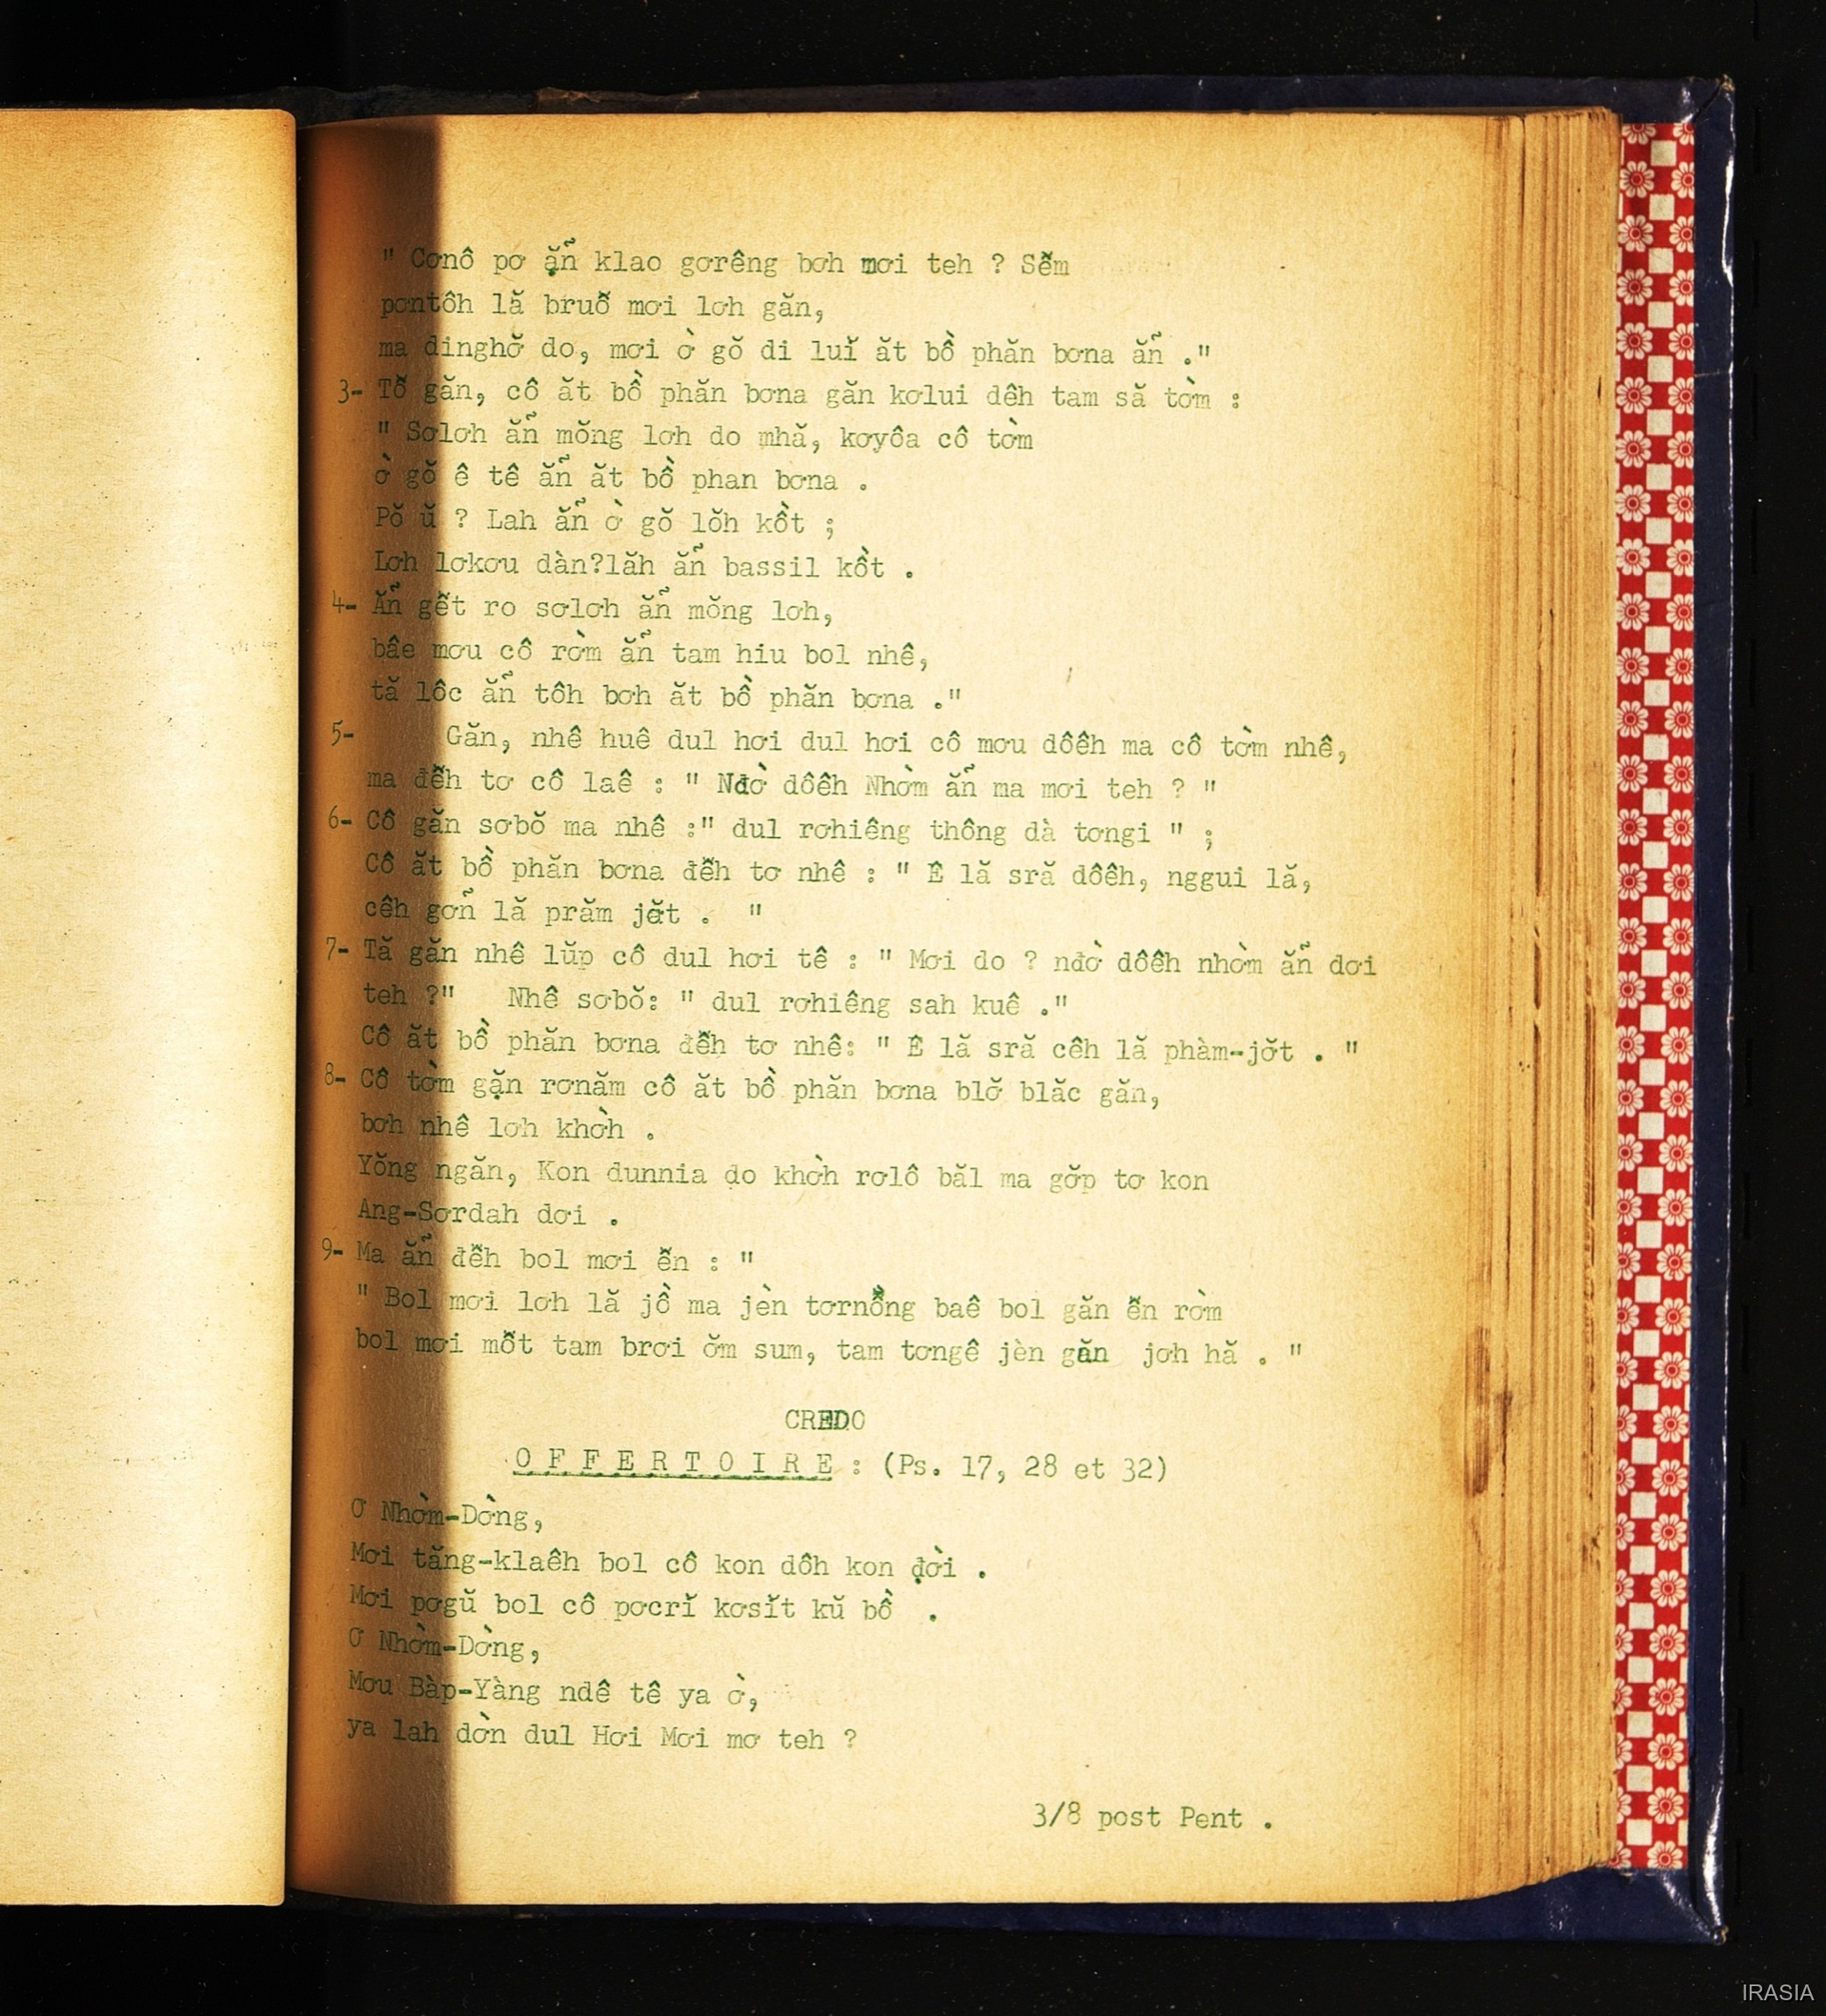 " Cơnô pơ ặñ klao gơrêng bơh mơi teh ? Sễm
pơntôh lă bruỗ mơi lơh găn,
ma dinghơ̆ do, mơi ờ gŏ di luĭ ăt bồ phăn bơna ăñ ."
3- Tỗ găn, cô ăt bồ phăn bơna găn kơlui dêh tam să tờm :
" Sơlơh ăñ mŏng lơh do mhă, kơyôa cô tờm
ờ gŏ ê tê ăñ ăt bồ phan bơna .
Pŏ ŭ ? Lah ăñ ờ gŏ lŏh kồt ;
Lơh lơkơu dàn?lăh ăñ bassil kồt .
4- Ăñ gễt ro sơlơh ăñ mŏng lơh,
bâe mơu cô rờm ăñ tam hiu bol nhê,
tă lôc ăñ tôh bơh ăt bồ phăn bơna ."
5- Găn, nhê huê dul hơi dul hơi cô mơu dôêh ma cô tờm nhê,
ma đễh tơ cô laê : " Nđờ dôêh Nhờm ăñ ma mơi teh ? "
6- Cô găn sơbŏ ma nhê :" dul rơhiêng thông dà tơngi " ;
Cô ăt bồ phăn bơna đễh tơ nhê : " Ê lă sră dôêh, nggui lă,
cêh goñ lă prăm jăt . "
7- Tă găn nhê lŭp cô dul hơi tê : " Mơi do ? nđờ dôêh nhờm ăñ dơi
teh ?" Nhê sơbŏ: " dul rơhiêng sah kuê ."
Cô ăt bồ phăn bơna đễh tơ nhê: " Ê lă sră cêh lă phàm-jơ̆t . "
8- Cô tờm gặn rơnăm cô ăt bồ phăn bơna blơ̆ blăc găn,
bơh nhê lơh khờh .
Yŏng ngăn, Kon dunnia do khờh rơlô băl ma gơ̆p tơ kon
Ang-Sơrdah dơi .
9- Ma ăñ đễh bol mơi ễn : "
" Bol mơi lơh lă jồ ma jèn tơrnồng baê bol găn ễn rờm
bol mơi mỗt tam brơi ơ̆m sum, tam tơngê jèn găn jơh hă . "
CREDO
O F F E R T O I R E : (Ps. 17, 28 et 32)
Ơ Nhờm-Dờng,
Mơi tăng-klaêh bol cô kon dôh kon đời .
Mơi pơgŭ bol cô pơcrĭ kơsĭt kŭ bồ .
Ơ Nhờm-Dờng,
Mơu Bàp-Yàng ndê tê ya ờ,
ya lah dờn dul Hơi Mơi mơ teh ?
3/8 post Pent .
IRASIA